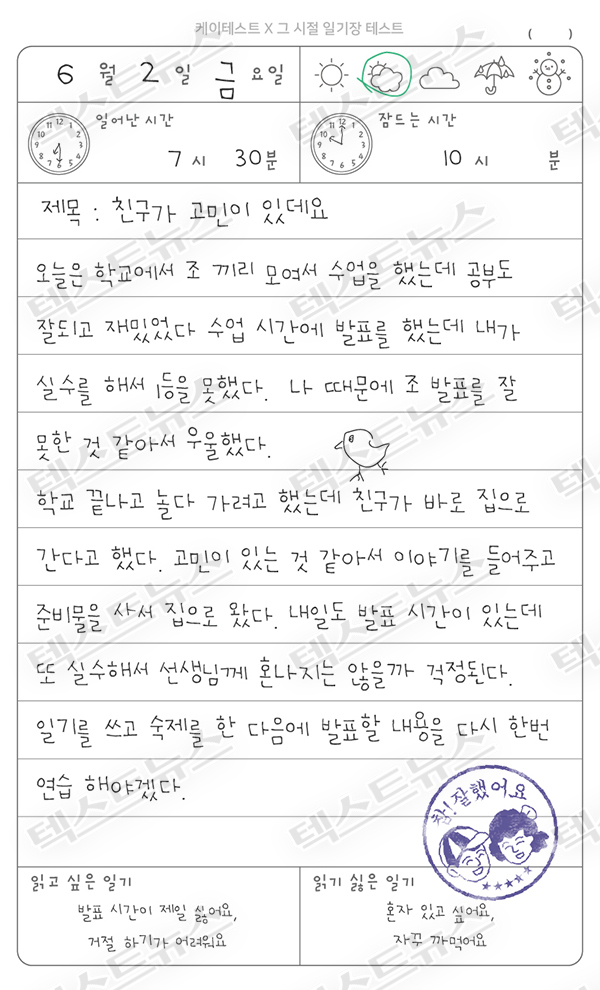 케이테스트 X 그 시절 일기장 테스트
( )
6 월 2 일 금 요일
일어난 시간
7 시 30 분
잠드는 시간
10 시 분
제목 : 친구가 고민이 있데요
오늘은 학교에서 조 끼리 모여서 수업을 했는데 공부도
잘되고 재밌었다 수업 시간에 발표를 했는데 내가
실수를 해서 1등을 못했다. 나 때문에 조 발표를 잘
못한 것 같아서 우울했다.
학교 끝나고 놀다 가려고 했는데 친구가 바로 집으로
간다고 했다. 고민이 있는 것 같아서 이야기를 들어주고
준비물을 사서 집으로 왔다. 내일도 발표 시간이 있는데
또 실수해서 선생님께 혼나지는 않을까 걱정된다.
일기를 쓰고 숙제를 한 다음에 발표할 내용을 다시 한번
연습 해야겠다.
참! 잘했어요
읽고 싶은 일기
발표 시간이 제일 싫어요,
거절 하기가 어려워요
읽기 싫은 일기
혼자 있고 싶어요,
자꾸 까먹어요
텍스트뉴스